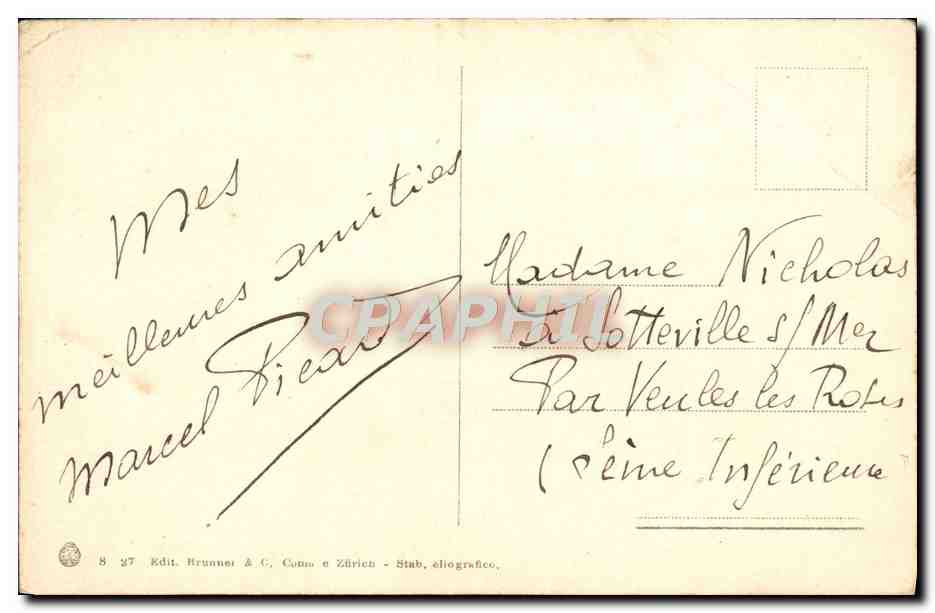 Mes
meilleures amitiés
Marcel Picard
Madame Nicholas
à Sotteville s/ Mer
Par Veules les Roses
(Seine Inférieure
CPAPHIL
8 27 Edit. Brunner & C. Como e Zürich - Stab. eliografico.